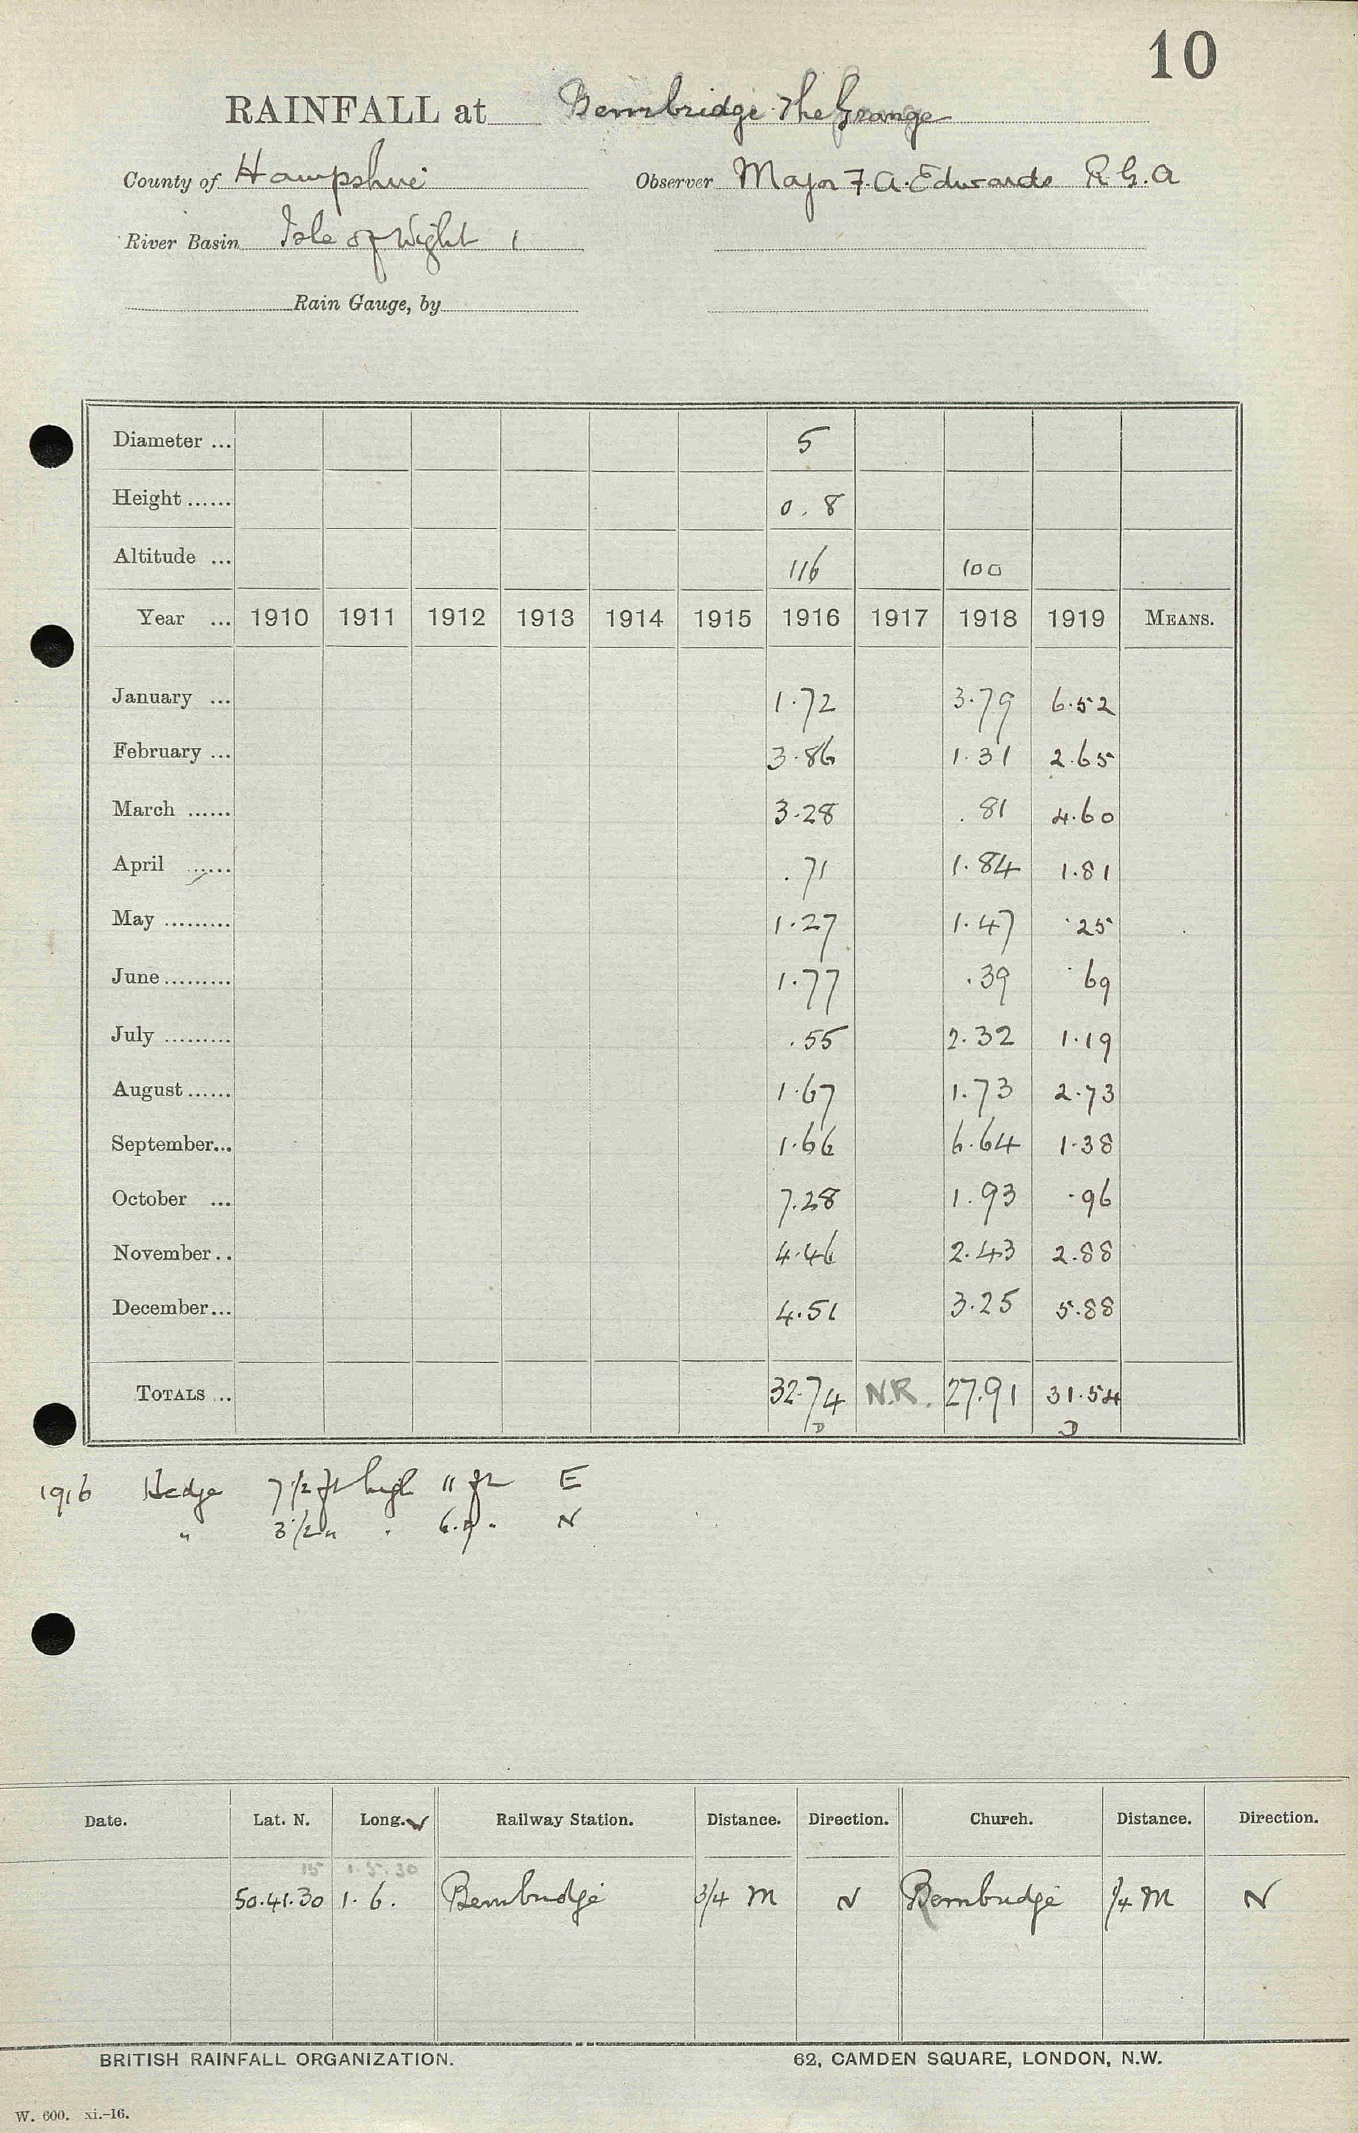 10
RAINFALL at Bembridge. The Grange
County of Hampshire Observer Major F. A. Edwards R G. A
River Basin Isle of Wight 1
Rain Gauge, by
Diameter ... 5
Height ...... 0.8
Altitude ... 116 100
Year ... 1910 1911 1912 1913 1914 1915 1916 1917 1918 1919 MEANS.
January ... 1.72 3.79 6.52
February ... 3.86 1.31 2.65
March ...... 3.28 .81 4.60
April ...... .71 1.84 1.81
May ......... 1.27 1.47 .25
June ......... 1.77 .39 .69
July ......... .55 2.32 1.19
August ...... 1.67 1.73 2.73
September... 1.66 6.64 1.38
October ... 7.28 1.93 .96
November.. 4.46 2.43 2.88
December... 4.51 3.25 5.88
TOTALS ... 32.74 N.R. 27.91 31.54
D D
1916 Hedge 7 1/2 ft high 11 ft E
" 3 1/2 " " 6. " N
Date. Lat. N. Long. W Railway Station. Distance. Direction. Church. Distance. Direction.
15 1.5.30
50.41.30 1.6. Bembridge 3/4 M N Bembridge 1/4 M N
BRITISH RAINFALL ORGANIZATION. 62, CAMDEN SQUARE, LONDON, N.W.
W. 600. xi.-16.